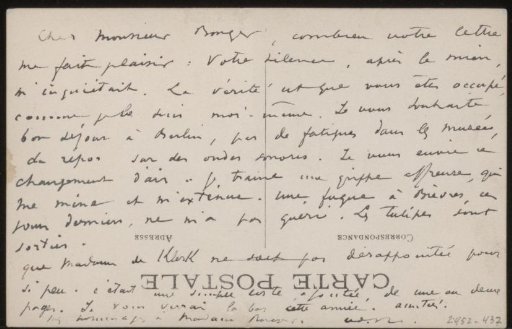 Cher Monsieur Bonger, combien votre lettre
me fait plaisir : Votre silence, après le mien,
m'inquiétait. La vérité est que vous êtes occupé,
comme je le suis moi-même. Je vous souhaite
bon séjour à Berlin, pas de fatigues dans les musées,
du repos sur des ondes sonores. Je vous envie ce
changement d'air. Je traine une grippe affreuse, qui
me mine et m'exténue. Une fugue à Bièvres, ces
jours derniers, ne m'a pas guéri. Les tulipes sont
sorties.
ADRESSE CORRESPONDANCE
que Madame de Klerk ne soit pas désappointée pour
CARTE POSTALE
si peu. c'était une simple carte de une ou deux
pages. Je vous verrai là bas cette année. amitié.
hommages à Madame Bonger.
2452-437